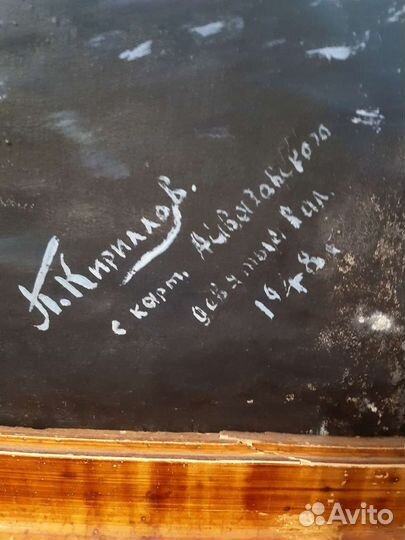 П. Кириллов.
с карт. Айвазовского
девятый вал.
1948 г
Avito